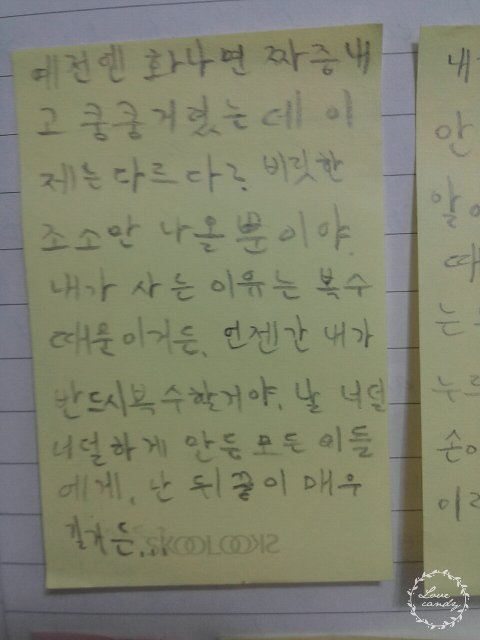 예전엔 화나면 짜증내
고 쿵쿵거렸는데 이
제는 다르다?. 비릿한
조소만 나올뿐이야.
내가 사는 이유는 복수
때문이거든. 언젠간 내가
반드시 복수할거야. 날 너덜
너덜하게 만든 모든 이들
에게. 난 뒤끝이 매우
길거든.
SKOOLOOKS
내
안
알
때
는
누르
손이
이라
Love
candy